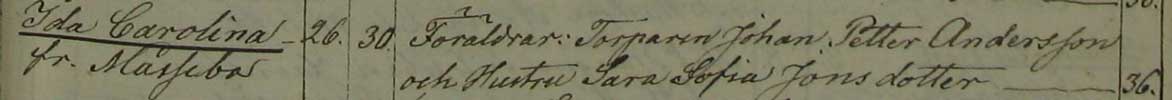 Ida Carolina – 26. 30. Föräldrar: Torparen Johan Petter Andersson
fr. Måssebo och Hustru Sara Sofia Jonsdotter — 36.